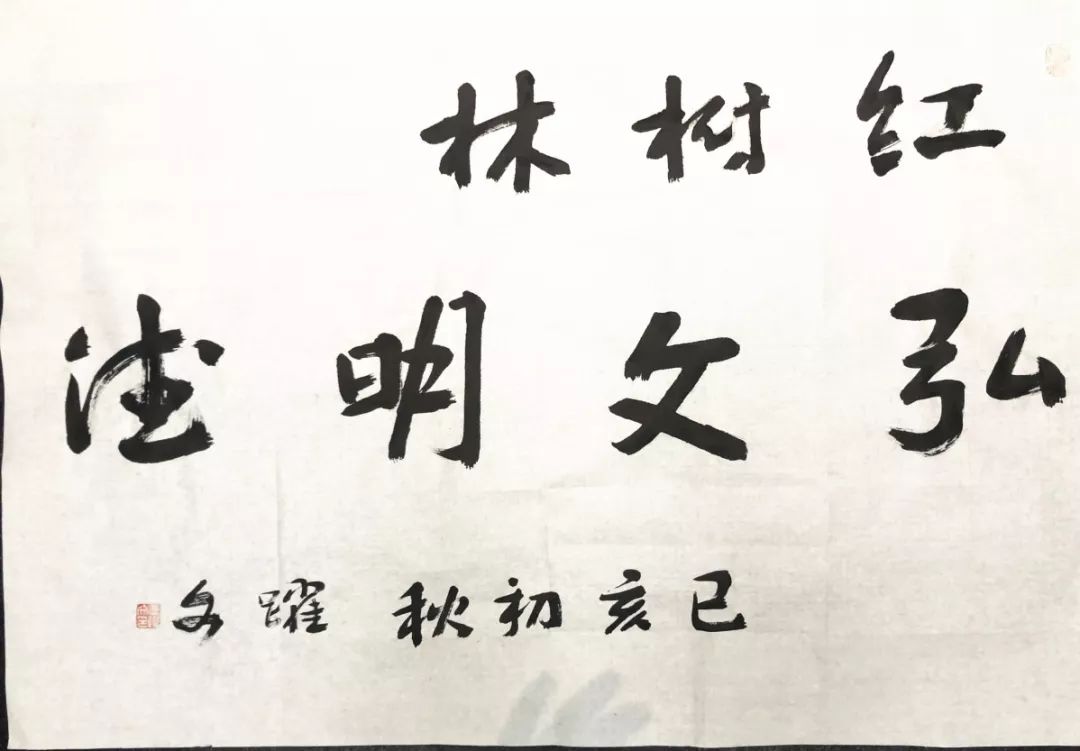 红树林
弘文明德
己亥初秋 躍文